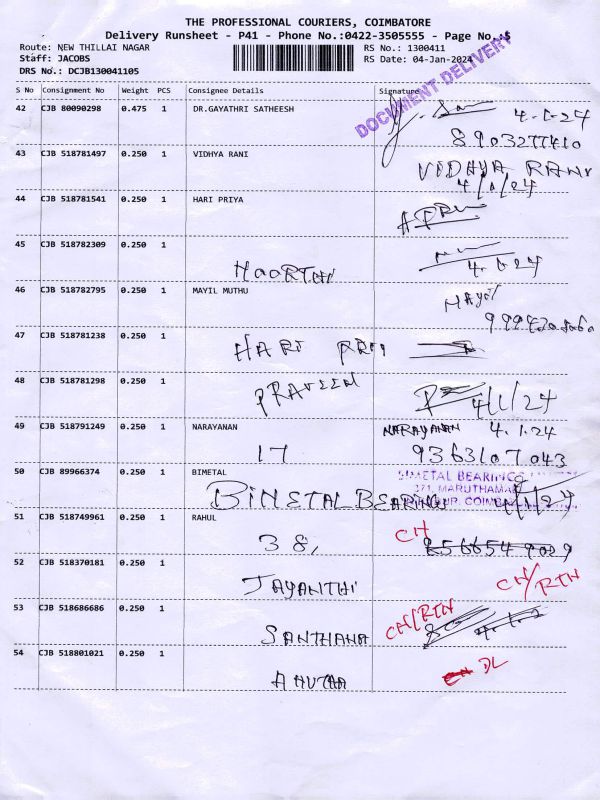 THE PROFESSIONAL COURIERS, COIMBATORE
Delivery Runsheet - P41 - Phone No.:0422-3505555 - Page No.:
Route: NEW THILLAI NAGAR
RS No.: 1300411
Staff: JACOBS
RS Date: 04-Jan-2024
DRS No.: DCJB130041105
DOCUMENT DELIVERY
S No Consignment No Weight PCS Consignee Details Signature
42 CJB 80090298 0.475 1 DR.GAYATHRI SATHEESH 4.1.24
8903277410
43 CJB 518781497 0.250 1 VIDHYA RANI VIDHYA RANI
4/1/24
44 CJB 518781541 0.250 1 HARI PRIYA
45 CJB 518782309 0.250 1
4.1.24
46 CJB 518782795 0.250 1 MAYIL MUTHU
47 CJB 518781238 0.250 1
HARI
48 CJB 518781298 0.250 1
PRAVEEN 4/1/24
49 CJB 518791249 0.250 1 NARAYANAN NARAYANAN 4.1.24
17 9363107043
50 CJB 89966374 0.250 1 BIMETAL BIMETAL BEARINGS
371, MARUTHAMA
BIMETAL BEARINGS COIMB
51 CJB 518749961 0.250 1 RAHUL CH
38,
52 CJB 518370181 0.250 1 CH/RTN
JAYANTHI
53 CJB 518686686 0.250 1 CH/RTN
SANTHANA
54 CJB 518801021 0.250 1 DL